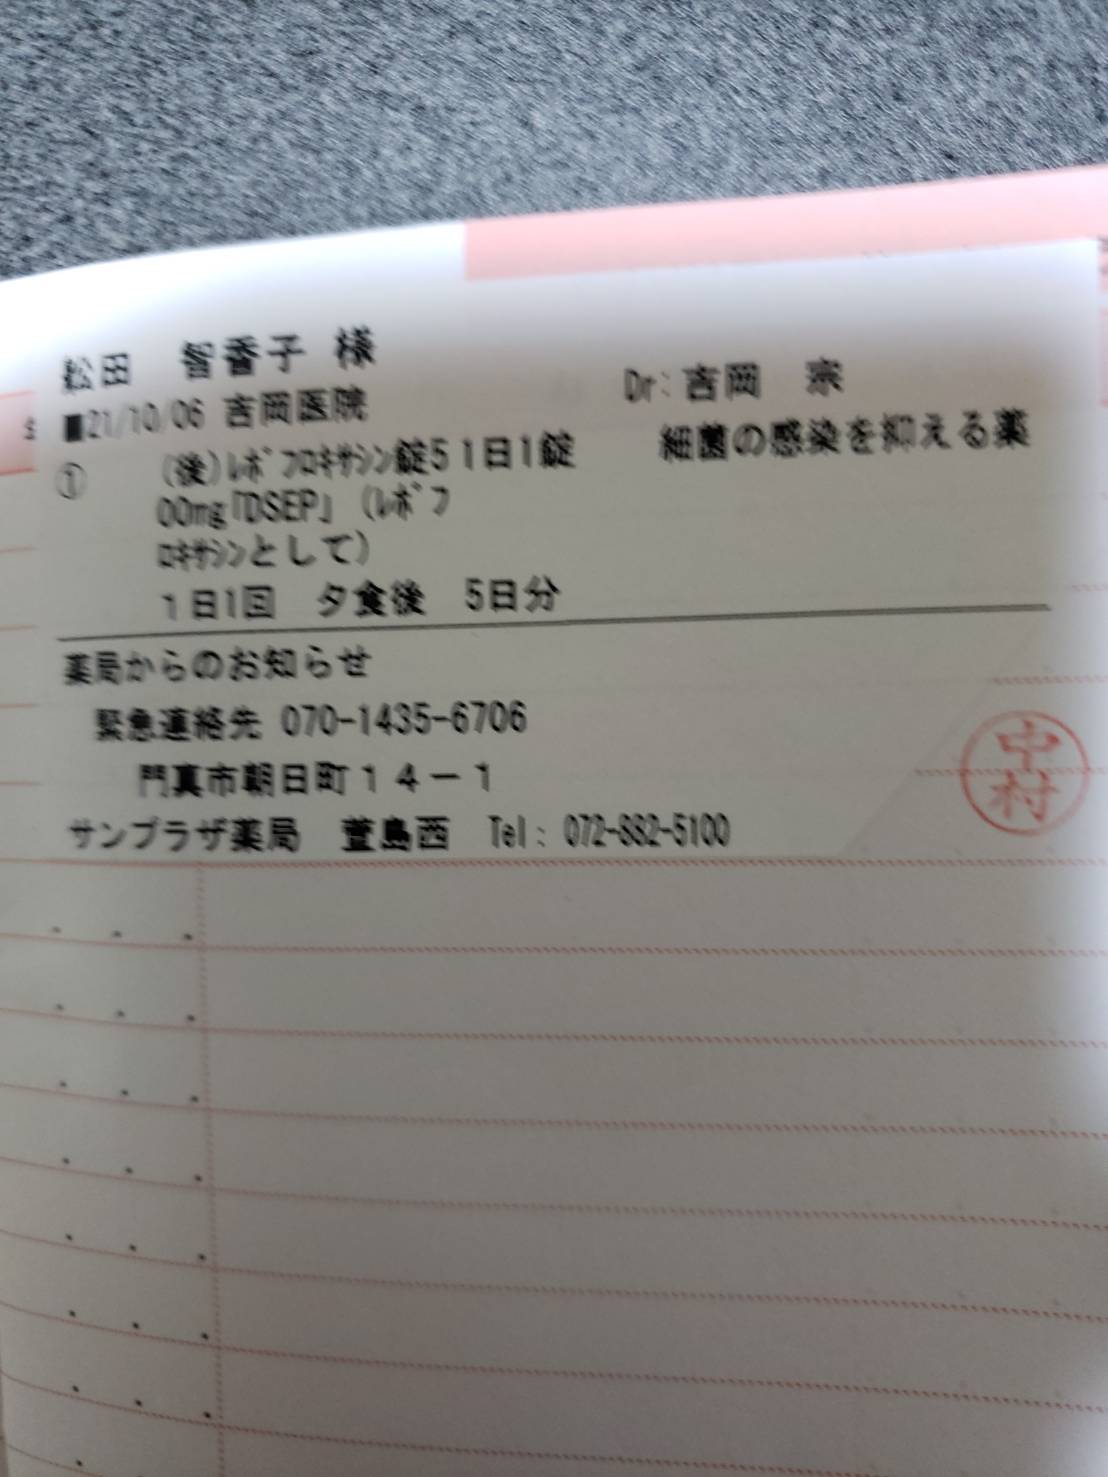 松田 智香子 様
■21/10/06 吉岡医院 Dr:吉岡 宗
① (後)ﾚﾎﾞﾌﾛｷｻｼﾝ錠5 1日1錠 細菌の感染を抑える薬
00mg「DSEP」 (ﾚﾎﾞﾌ
ﾛｷｻｼﾝとして)
1日1回 夕食後 5日分
薬局からのお知らせ
緊急連絡先 070-1435-6706
門真市朝日町14-1
サンプラザ薬局 萱島西 Tel: 072-882-5100
中村